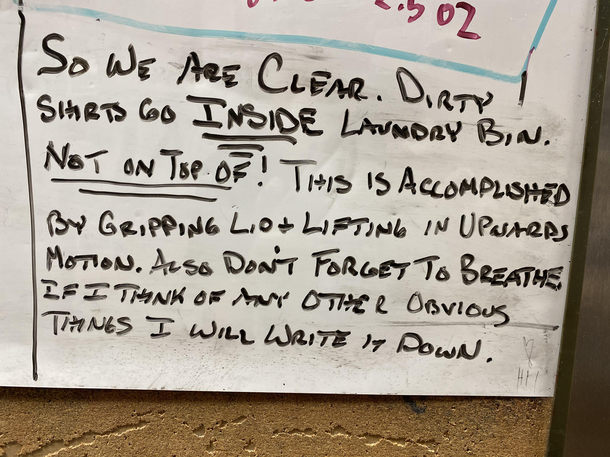 2.5 OZ
SO WE ARE CLEAR. DIRTY
SHIRTS GO INSIDE LAUNDRY BIN.
NOT ON TOP OF! THIS IS ACCOMPLISHED
BY GRIPPING LID + LIFTING IN UPWARDS
MOTION. ALSO DON'T FORGET TO BREATHE.
IF I THINK OF ANY OTHER OBVIOUS
THINGS I WILL WRITE IT DOWN.